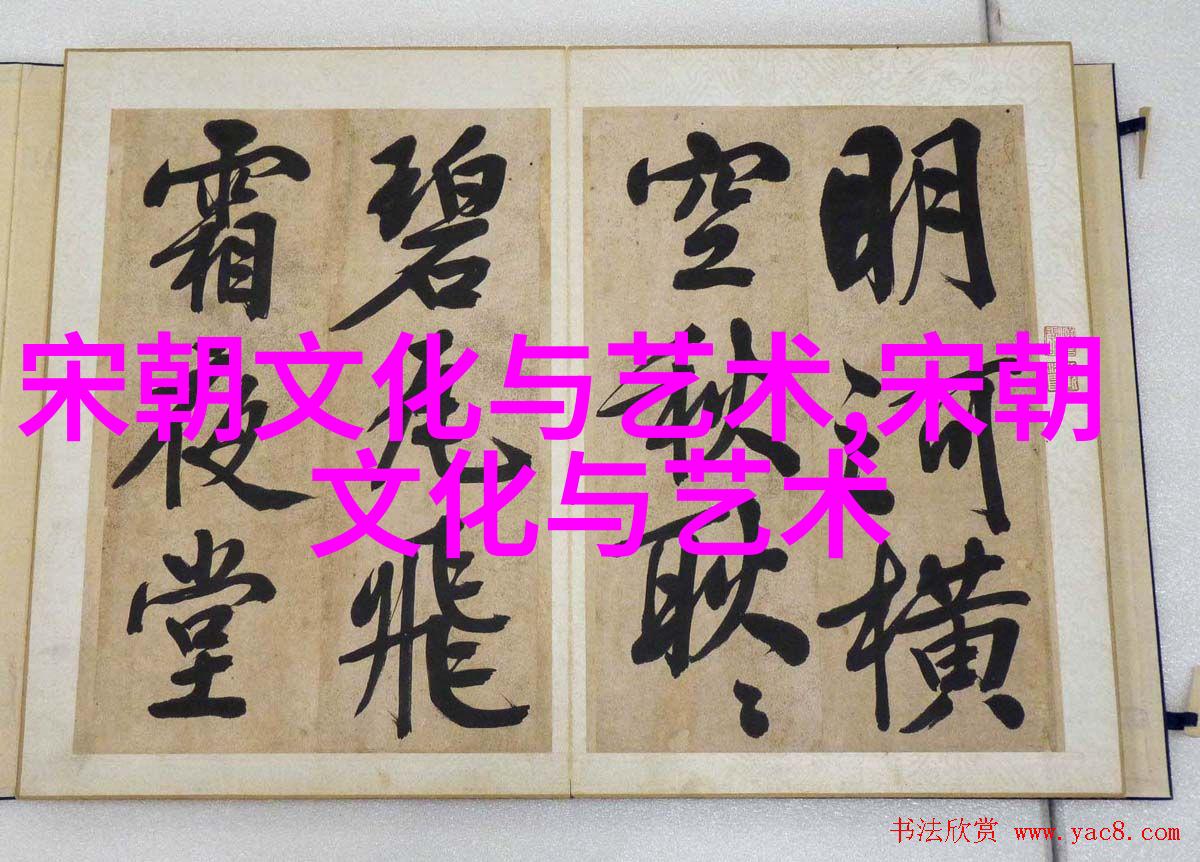 明河橫
空秋耿々
碧瓦飛
霜夜堂
宋朝文化与艺术,宋朝
文化与艺术
书法欣赏 www.yac8.com